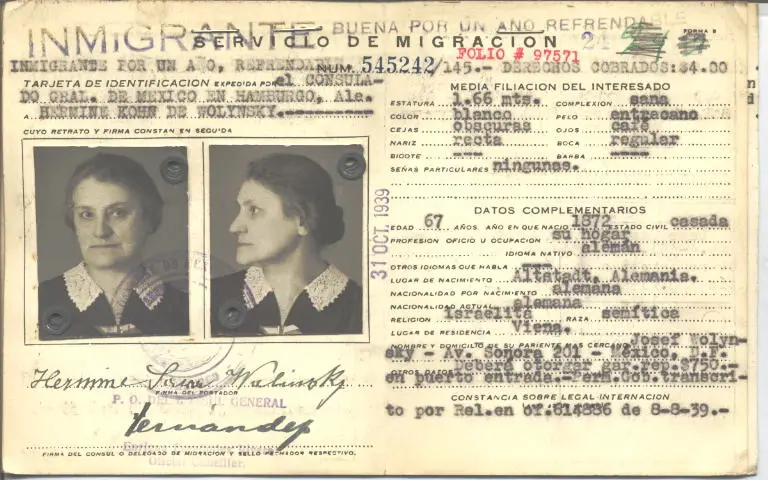 INMIGRANTE BUENA POR UN AÑO REFRENDABLE
SERVICIO DE MIGRACION
FORMA 5
FOLIO # 97571
INMIGRANTE POR UN AÑO, REFRENDA
NUM. 545242/145.- DERECHOS COBRADOS:$4.00
TARJETA DE IDENTIFICACION EXPEDIDA POR el CONSULA-
DO GRAL. DE MEXICO EN HAMBURGO, Ale.
A HERMINE KOHN DE WOLYNSKY.
CUYO RETRATO Y FIRMA CONSTAN EN SEGUIDA
31 OCT. 1939
Hermine Sara Wolinsky
FIRMA DEL PORTADOR
P. O. DEL CONSUL GENERAL
Fernandez
Canciller.
FIRMA DEL CONSUL O DELEGADO DE MIGRACION Y SELLO FECHADOR RESPECTIVO.
MEDIA FILIACION DEL INTERESADO
ESTATURA 1.66 mts. COMPLEXION sana
COLOR blanco PELO entrecano
CEJAS obscuras OJOS café
NARIZ recta BOCA regular
BIGOTE ---- BARBA ----
SEÑAS PARTICULARES ningunas.
DATOS COMPLEMENTARIOS
EDAD 67 AÑOS. AÑO EN QUE NACIO 1872 ESTADO CIVIL casada
PROFESION OFICIO U OCUPACION su hogar
IDIOMA NATIVO alemán
OTROS IDIOMAS QUE HABLA ----
LUGAR DE NACIMIENTO Altstadt, Alemania.
NACIONALIDAD POR NACIMIENTO alemana
NACIONALIDAD ACTUAL alemana
RELIGION israelita RAZA semítica
LUGAR DE RESIDENCIA Viena.
NOMBRE Y DOMICILIO DE SU PARIENTE MAS CERCANO Josef Wolyn-
sky - Av. Sonora 201 - México, D.F.
OTROS DATOS Deberá otorgar gar.rep.$750.-
en puerto entrada.- Perm.Gob.transcri-
CONSTANCIA SOBRE LEGAL INTERNACION
to por Rel.en of.814886 de 8-8-39.-